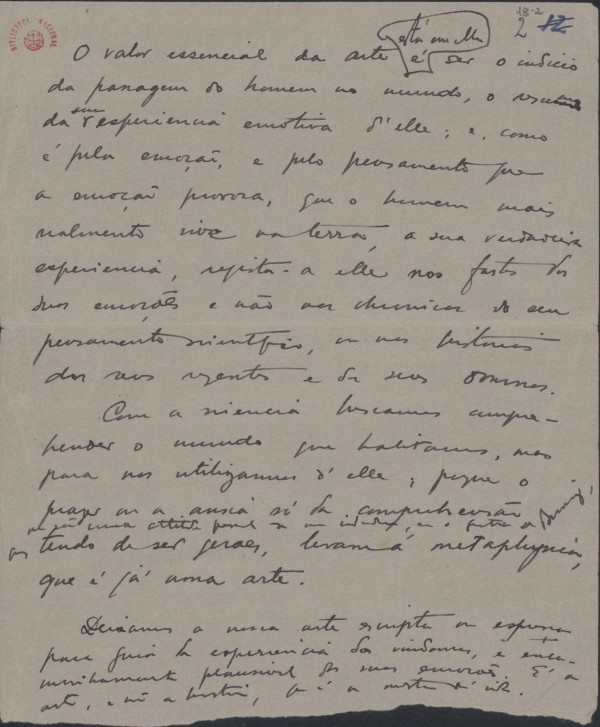 BIBLIOTHECA NACIONAL
18-2
2 12
está em elle
O valor essencial da arte é ser o indicio
da passagem do homem no mundo, o resumo
da sua experiencia emotiva d'elle; e, como
é pela emoção, e pelo pensamento que
a emoção provoca, que o homem mais
realmente vive na terra, a sua verdadeira
experiencia, regista-a elle nos fastos das
suas emoções e não nas chronicas do seu
pensamento scientifico, ou nas historias
dos seus regentes e de seus donos.
Com a sciencia buscamos compre-
hender o mundo que habitamos, mas
para nos utilizarmos d'elle; porque o
prazer ou a ansia só da comprehensão
tendo de ser geraes, levam á metaphysica,
que é já uma arte.
Deixamos a nossa arte escripta
para guia da experiencia dos vindouros, e
plausivel das suas emoções. É a
arte, e não a historia, que é a mestra da vida.